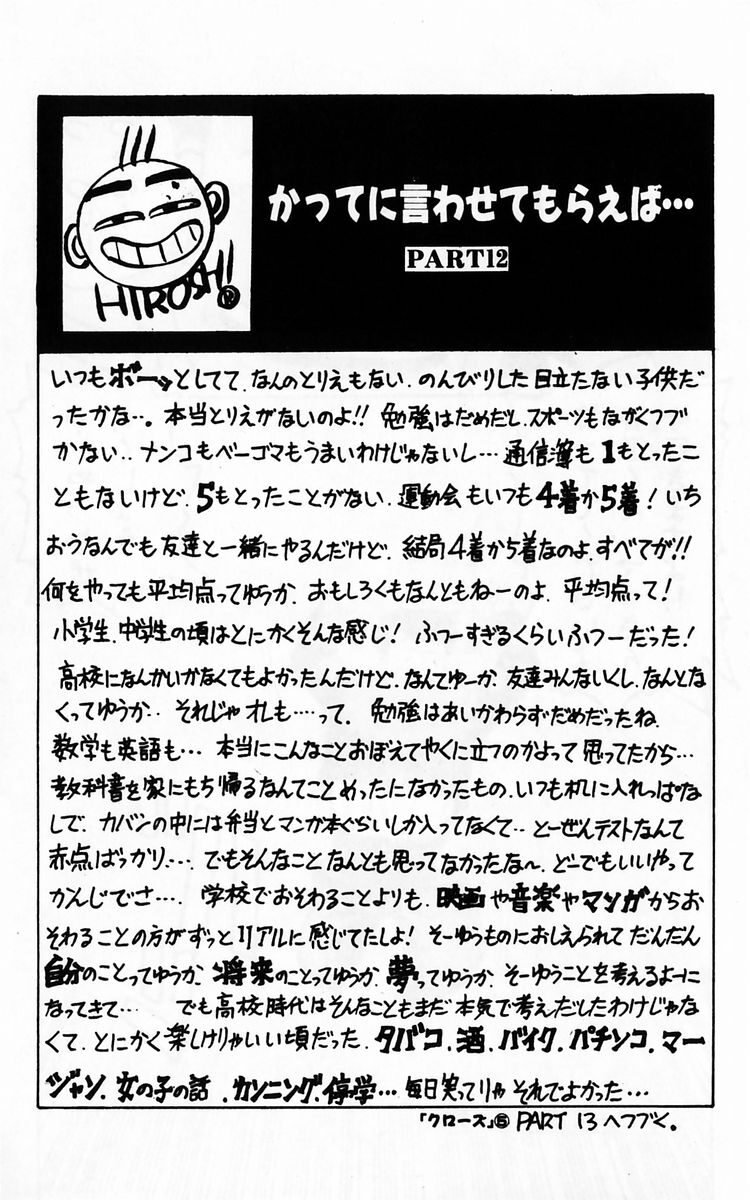 かってに言わせてもらえば…
PART12
HIROSHI
R
いつもボーッとしてて、なんのとりえもない、のんびりした目立たない子供だ
ったかな…。本当とりえがないのよ!! 勉強はだめだし、スポーツもながくつづ
かない… ナンコもベーゴマもうまいわけじゃないし… 通信簿も1もとったこ
ともないけど、5もとったことがない、運動会もいつも4着か5着! いち
おうなんでも友達と一緒にやるんだけど、結局4着から5着なのよ、すべてが!!
何をやっても平均点ってゆうか、おもしろくもなんともねーのよ、平均点って!
小学生、中学生の頃はとにかくそんな感じ! ふつーすぎるくらいふつーだった!
高校になんかいかなくてもよかったんだけど、なんてゆーか、友達みんないくし、なんとな
くってゆうか… それじゃオレも…って、勉強はあいかわらずだめだったね、
数学も英語も… 本当にこんなことおぼえてやくに立つのかよって思ってたから…
教科書を家にもち帰るなんてことめったになかったもの、いつも机に入れっぱな
しで、カバンの中には弁当とマンガ本ぐらいしか入ってなくて… とーぜんテストなんて
赤点ばっかり…、でもそんなことなんとも思ってなかったな〜、どーでもいいやって
かんじでさ…、学校でおそわることよりも、映画や音楽やマンガからお
そわることの方がずっとリアルに感じてたしよ! そーゆうものにおしえられてだんだん
自分のことってゆうか、将来のことってゆうか、夢ってゆうか、そーゆうことを考えるよーに
なってきて… でも高校時代はそんなこともまだ本気で考えだしたわけじゃな
くて、とにかく楽しけりゃいい頃だった、タバコ、酒、バイク、パチンコ、マー
ジャン、女の子の話、カンニング、停学… 毎日笑ってりゃそれでよかった…
「クローズ」⑤ PART 13へつづく。